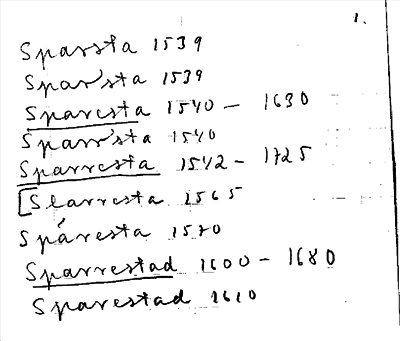 1.
Sparsta 1539
Spar'sta 1539
Sparesta 1540 - 1630
Sparrsta 1540
Sparresta 1542 - 1725
[Slarresta 1565
Spáresta 1570
Sparrestad 1600 - 1680
Sparestad 1610